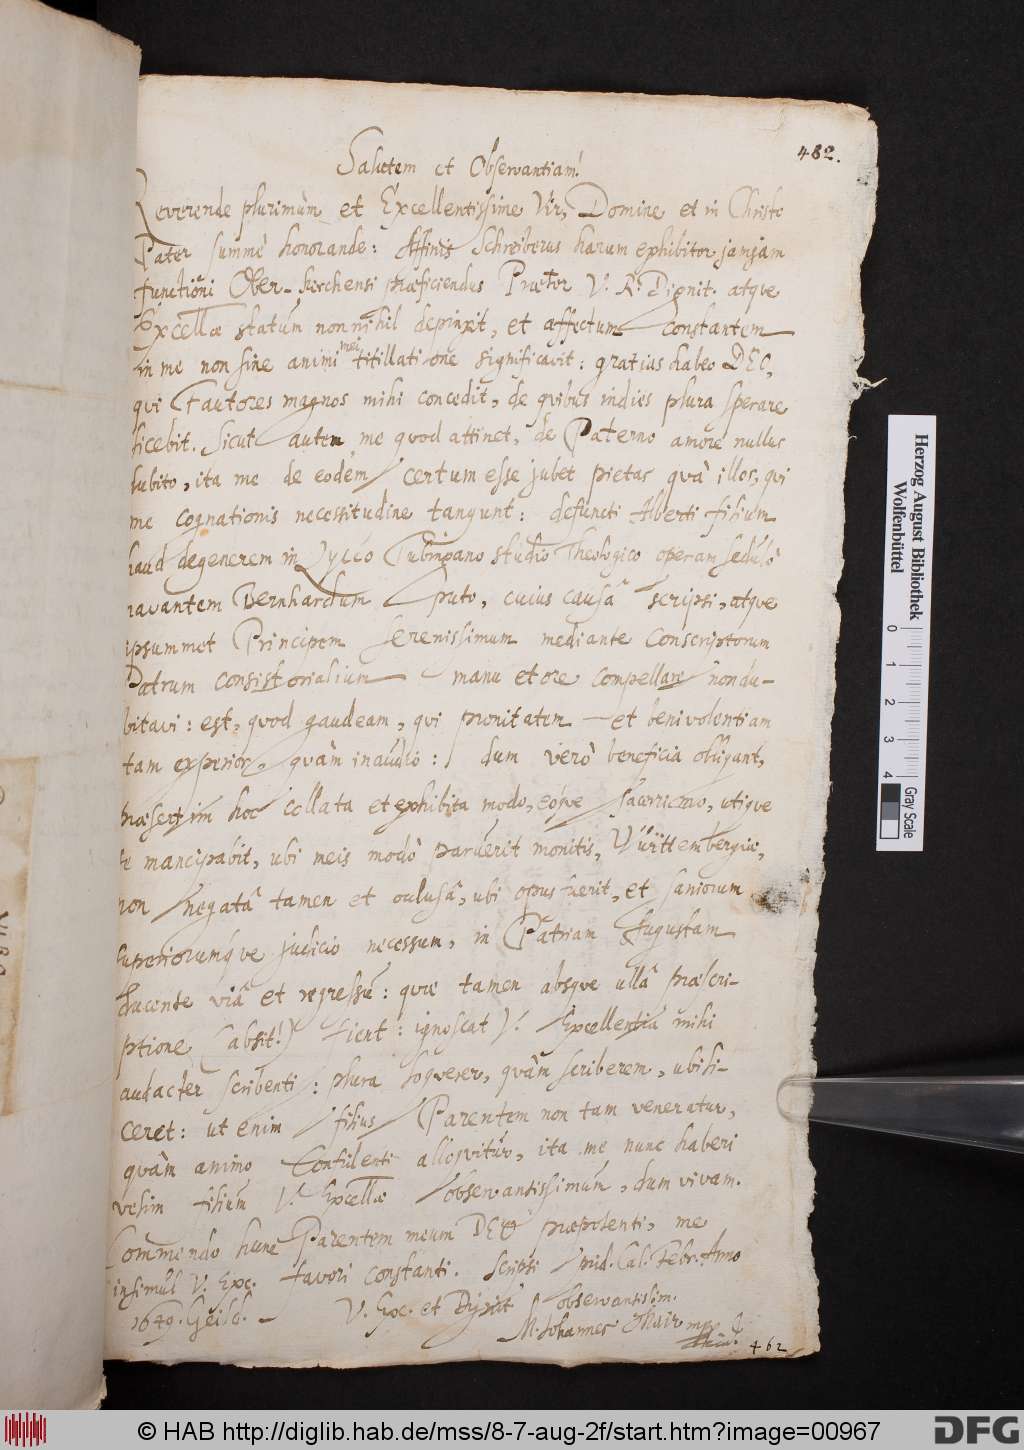 482.
Salutem et Observantiam!
Reverende plurimùm et Excellentissime Vir, Domine et in Christo
Pater summè honorande: Affinis Schreiberus harum exhibitor jamjam
functioni Ober- præficiendus Prætor V. R. Dignit. atque
Excellæ statum nonnihil depinxit, et affectum constantem
in me non sine animi mei titillatione significavit: gratias habeo DEO,
qui Fautores magnos mihi concedit, de quibus indies plura sperare
licebit. Sicut autem, me quod attinet, de Paterno amore nullus
dubito, ita me de eodem certum esse jubet pietas quâ illos, qui
me cognationis necessitudine tangunt: defuncti Alberti filium
haud degenerem in Lycéo Tubingano studio Theologico operam sedulò
navantem Bernhardum puto, cuius causâ scripsi, atque
ipsummet Principem serenissimum mediante Conscriptorum
Patrum consistorialium manu et ore compellare non du-
bitavi: est, quod gaudeam, qui et benivolentiam
tam experior, quàm inaudio: dum verò beneficia obligant,
præsertim hoc collata et exhibita modo, eoque utique
se mancipabit, ubi meis modò paruerit monitis, Würtembergiæ,
non negatâ tamen et ubi opus fuerit, et saniorum
superiorumque judicio necessum, in Patriam Augustam
ducente viâ et regressu: quæ tamen absque ullâ præscri-
ptione (absit!) fient: ignoscat V. Excellentia mihi
audacter scribenti: plura loquerer, quàm scriberem, ubi li-
ceret: ut enim filius Parentem non tam veneratur,
quàm animo alloquitur, ita me nunc haberi
velim filium V. Excellæ observantissimum, dum vivam.
Commendo hunc Parentem meum DEO præpotenti, me
insimul V. Exc. favori constanti. Scripsi prid. Cal. Febr. Anno
1649.
V. Exc. et Dignit observantissim.
M. Johannes mpp
462
Herzog August Bibliothek
Wolfenbüttel
0 1 2 3 4
Gray Scale
© HAB http://diglib.hab.de/mss/8-7-aug-2f/start.htm?image=00967
DFG